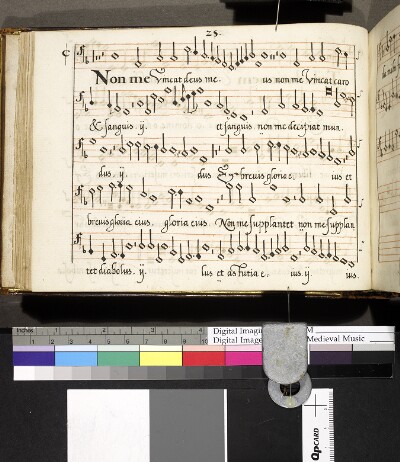 25.
C
Non me Vincat deus me. us non me Vincat caro
& sanguis. ij. et sanguis. non me decipiat mun.
dus. ij. dus & brevis gloria e. ius et
brevis gloria eius. gloria eius. Non me supplantet non me supplan
tet diabolus. ij. lus et astutia e. ius. ij. ius.
inches 1 2 3 4
Digital Imag
M
Digital Image
Medieval Music
QPCARD